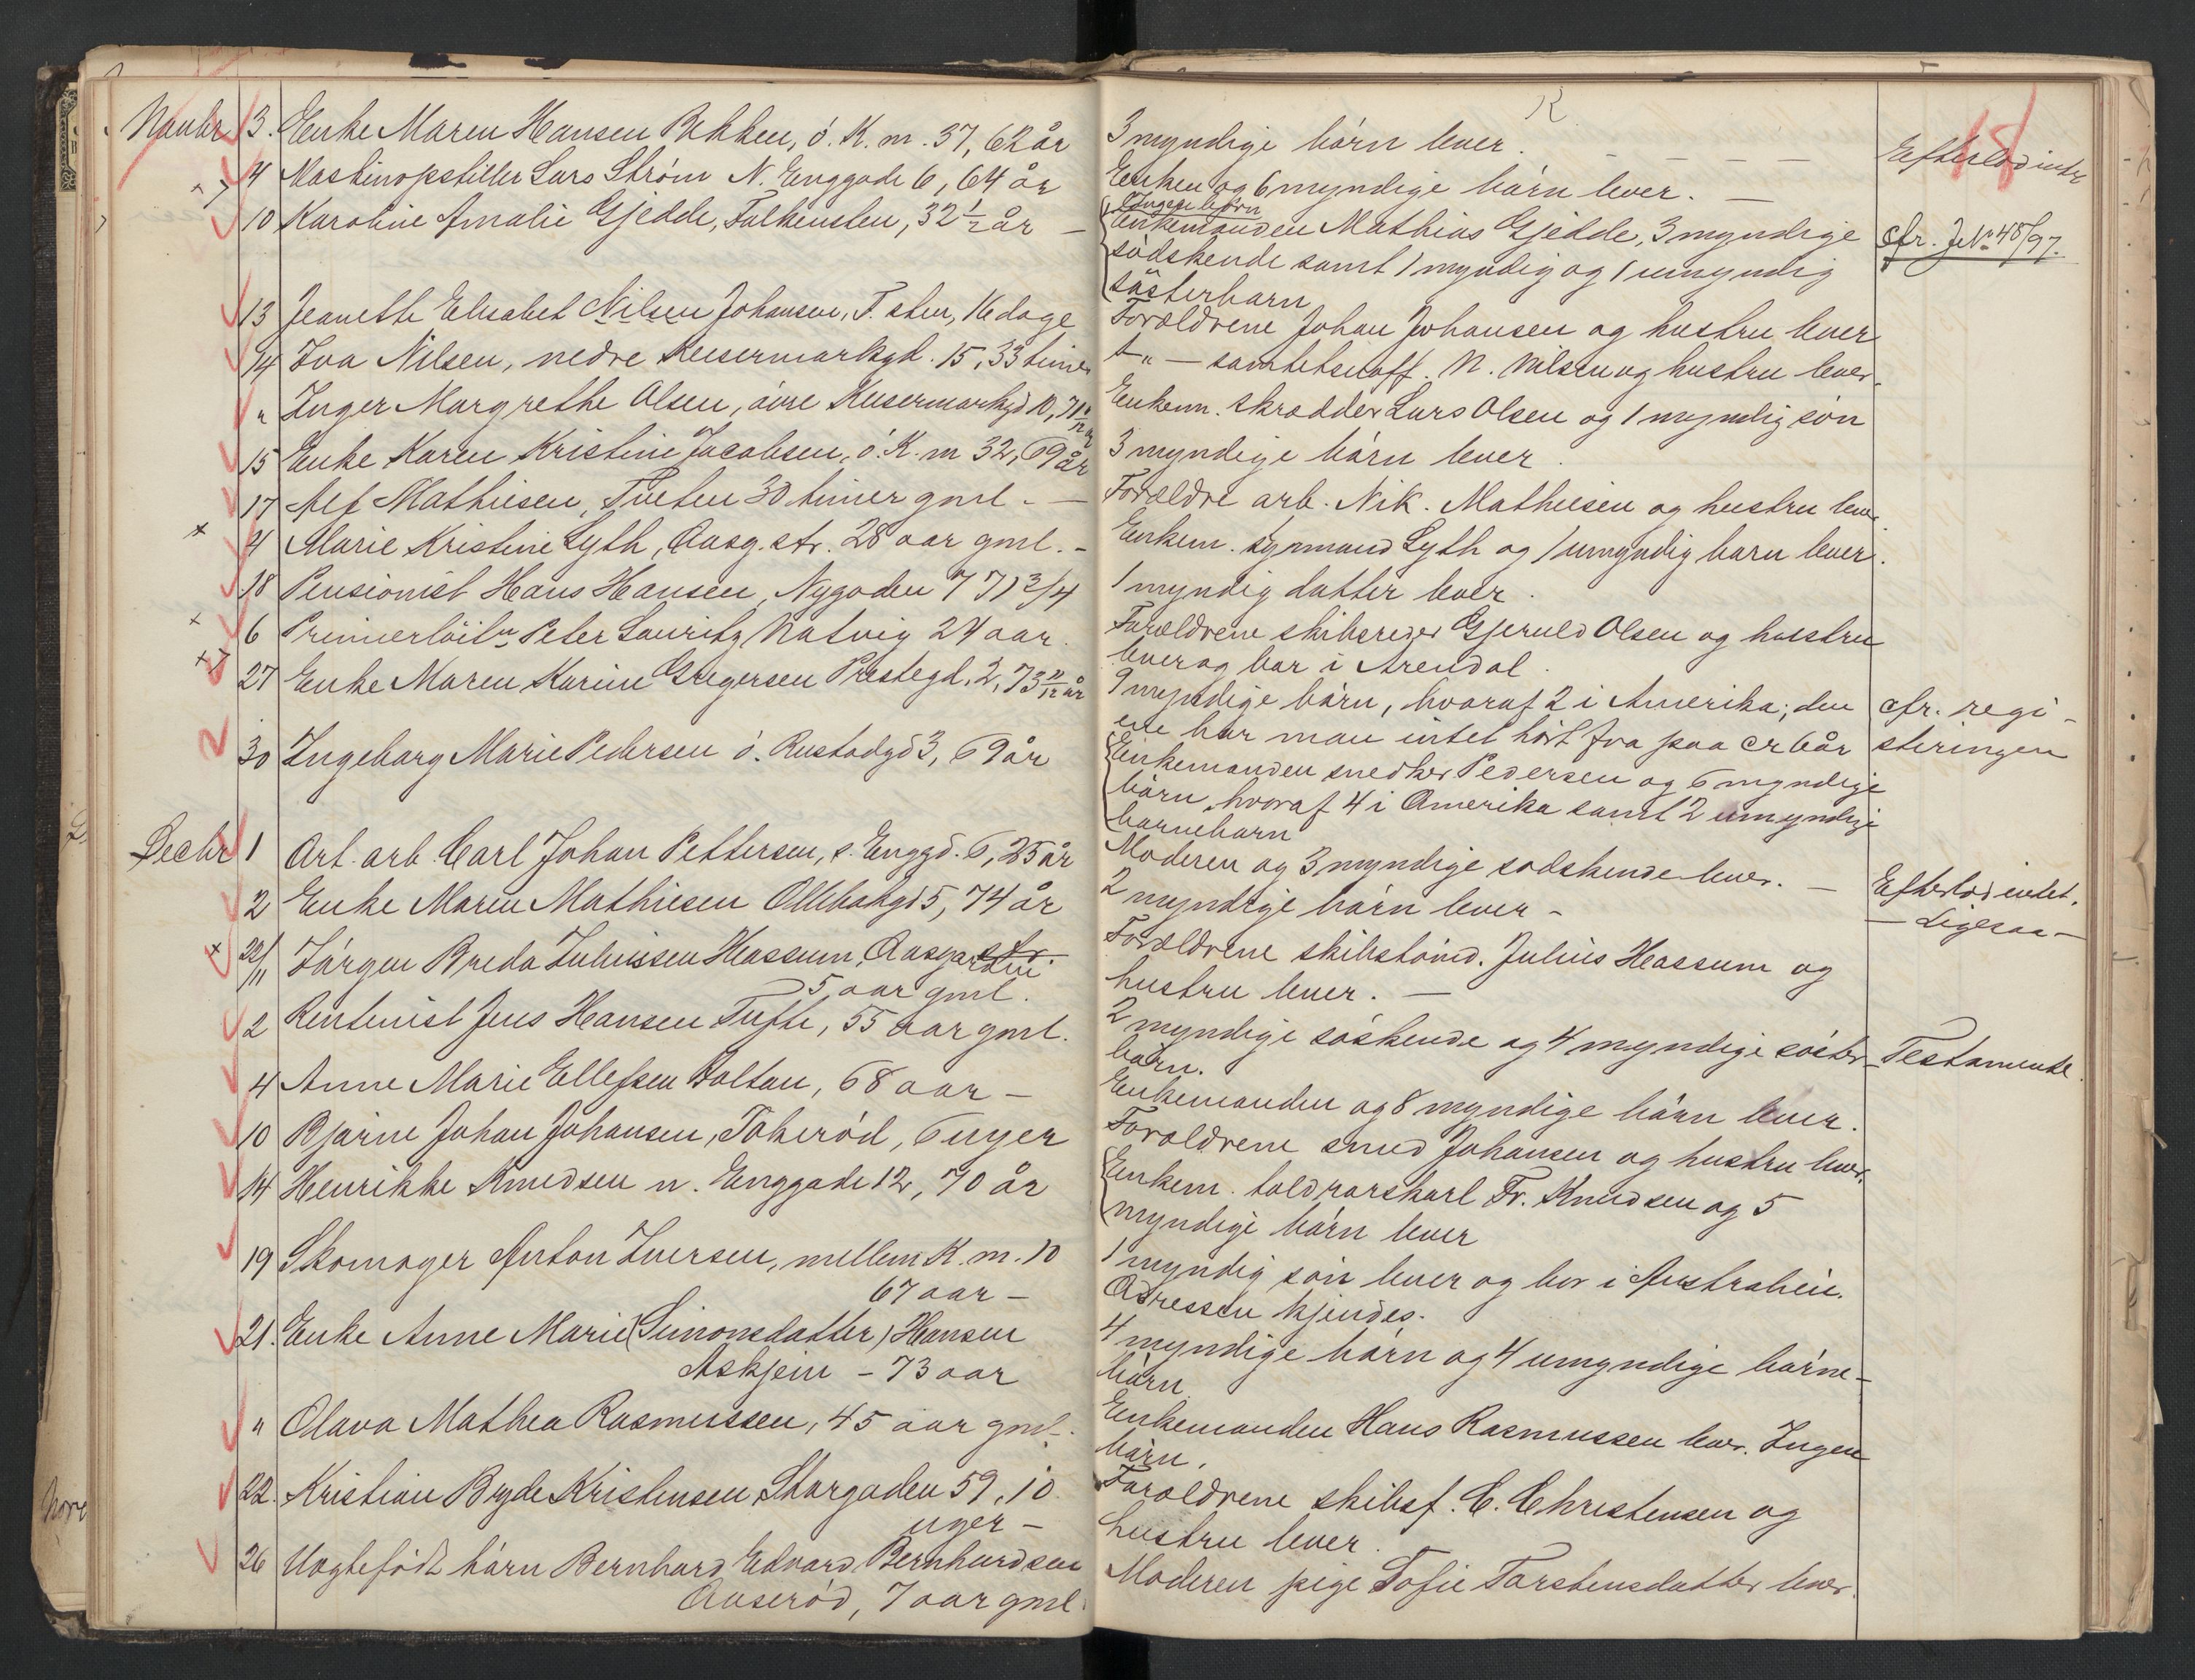 Novbr 3. Enke Maren Hansen Bakken, ö. K. m. 37, 62 år
4 Maskinopstiller Lars Strøm N. Enggade 6, 64 år
10 Karoline Amalie Gjedde, Falkensten, 32 1/2 år —
13 Jeaneth Elisabet Nilsen Johansen, F. sten, 16 dage
14 Iva Nilsen, nedre Keisermarkgd. 15, 33 timer
" Inger Margrethe Olsen, øvre Keisermarkgd 10, 71
15 Enke Karen Kristine Jacobsen, ö. K. m 32, 69 år
17 Alf Mathisen, Tveten 30 timer gml. —
4 Marie Kristine Lyth, Aasg. str. 28 aar gml. -
18 Pensionist Hans Hansen, Nygaden 7 71 3/4
6 Premierløitn Peter Lauritz Natvig 24 aar.
27 Enke Maren Karine Gregersen Prestegd. 2, 73 11/12 år
30 Ingeborg Marie Pedersen ö. Rustadgd 3, 69 år
Decbr 1 Art. arb. Carl Johan Pettersen, s. Enggd. 6, 25 år
2 Enke Maren Mathisen Ollebakgd 5, 74 år
22/11 Jørgen Breda Juliussen Hassum, Aasgarden
5 aar gml.
2 Rentenist Jens Hansen Tufte, 55 aar gml.
4 Anne Marie Ellefsen Baltan, 68 aar —
10 Bjarne Johan Johansen, Tokerød, 6 uger
14 Henrikke Knudsen n. Enggade 12, 70 år
19 Skomager Anton Iversen, mellem K. m. 10
67 aar —
21. Enke Anne Marie (Simonsdatter) Hansen
Askjem - 73 aar
" Olava Mathea Rasmussen, 45 aar gml.
22. Kristian Bryde Kristensen, Storgaden 59, 10
uger —
26 Uægtefødt bárn Bernhard Edvard Bernhardsen
Aaserød, 7 aar gml.
3 myndige bárn lever. — — — — Efterlod intet
Enken og 6 myndige bárn lever. —
Ingen børn
Enkemanden Mathias Gjedde, 3 myndige cfr. J.No 48/97.
södskende samt 1 myndig og 1 umyndig
sösterbarn
Forældrene Johan Johansen og hustru lever
—"— N. Nilsen og hustru lever.
Enkem. skrædder Lars Olsen og 1 myndig sön
3 myndige bárn lever.
Forældre arb. Nik. Mathisen og hustru lever.
Enkem. styrmand Lyth og 1 umyndig barn lever.
1 myndig datter lever.
Forældrene skibsreder Gjeruld Olsen og hustru
lever og bor i Arendal.
9 myndige bárn, hvoraf 2 i Amerika; den cfr. regi-
ene har man intet hört fra paa cr 6 år steringen
Enkemanden snedker Pedersen og 6 myndige
bárn, hvoraf 4 i Amerika samt 2 umyndige
barnebarn
Moderen og 3 myndige södskende lever. — Efterlod intet.
2 myndige bárn lever - — Ligesaa —
Forældrene skibstömd. Julius Hassum og
hustru lever. —
2 myndige söskende og 4 myndige söster- Testamente.
bárn.
Enkemanden og 8 myndige bárn lever.
Forældrene smed Johansen og hustru lever.
Enkem. toldrorskarl Fr. Knudsen og 5
myndige bárn lever
1 myndig sön lever og bor i Australien.
Adressen kjendes.
4 myndige bárn og 4 umyndige bárne-
bárn
Enkemanden Hans Rasmussen lever. Ingen
bárn.
Forældrene skibsf. C. Christensen og
hustru lever.
Moderen pige Sofie Torstensdatter lever.